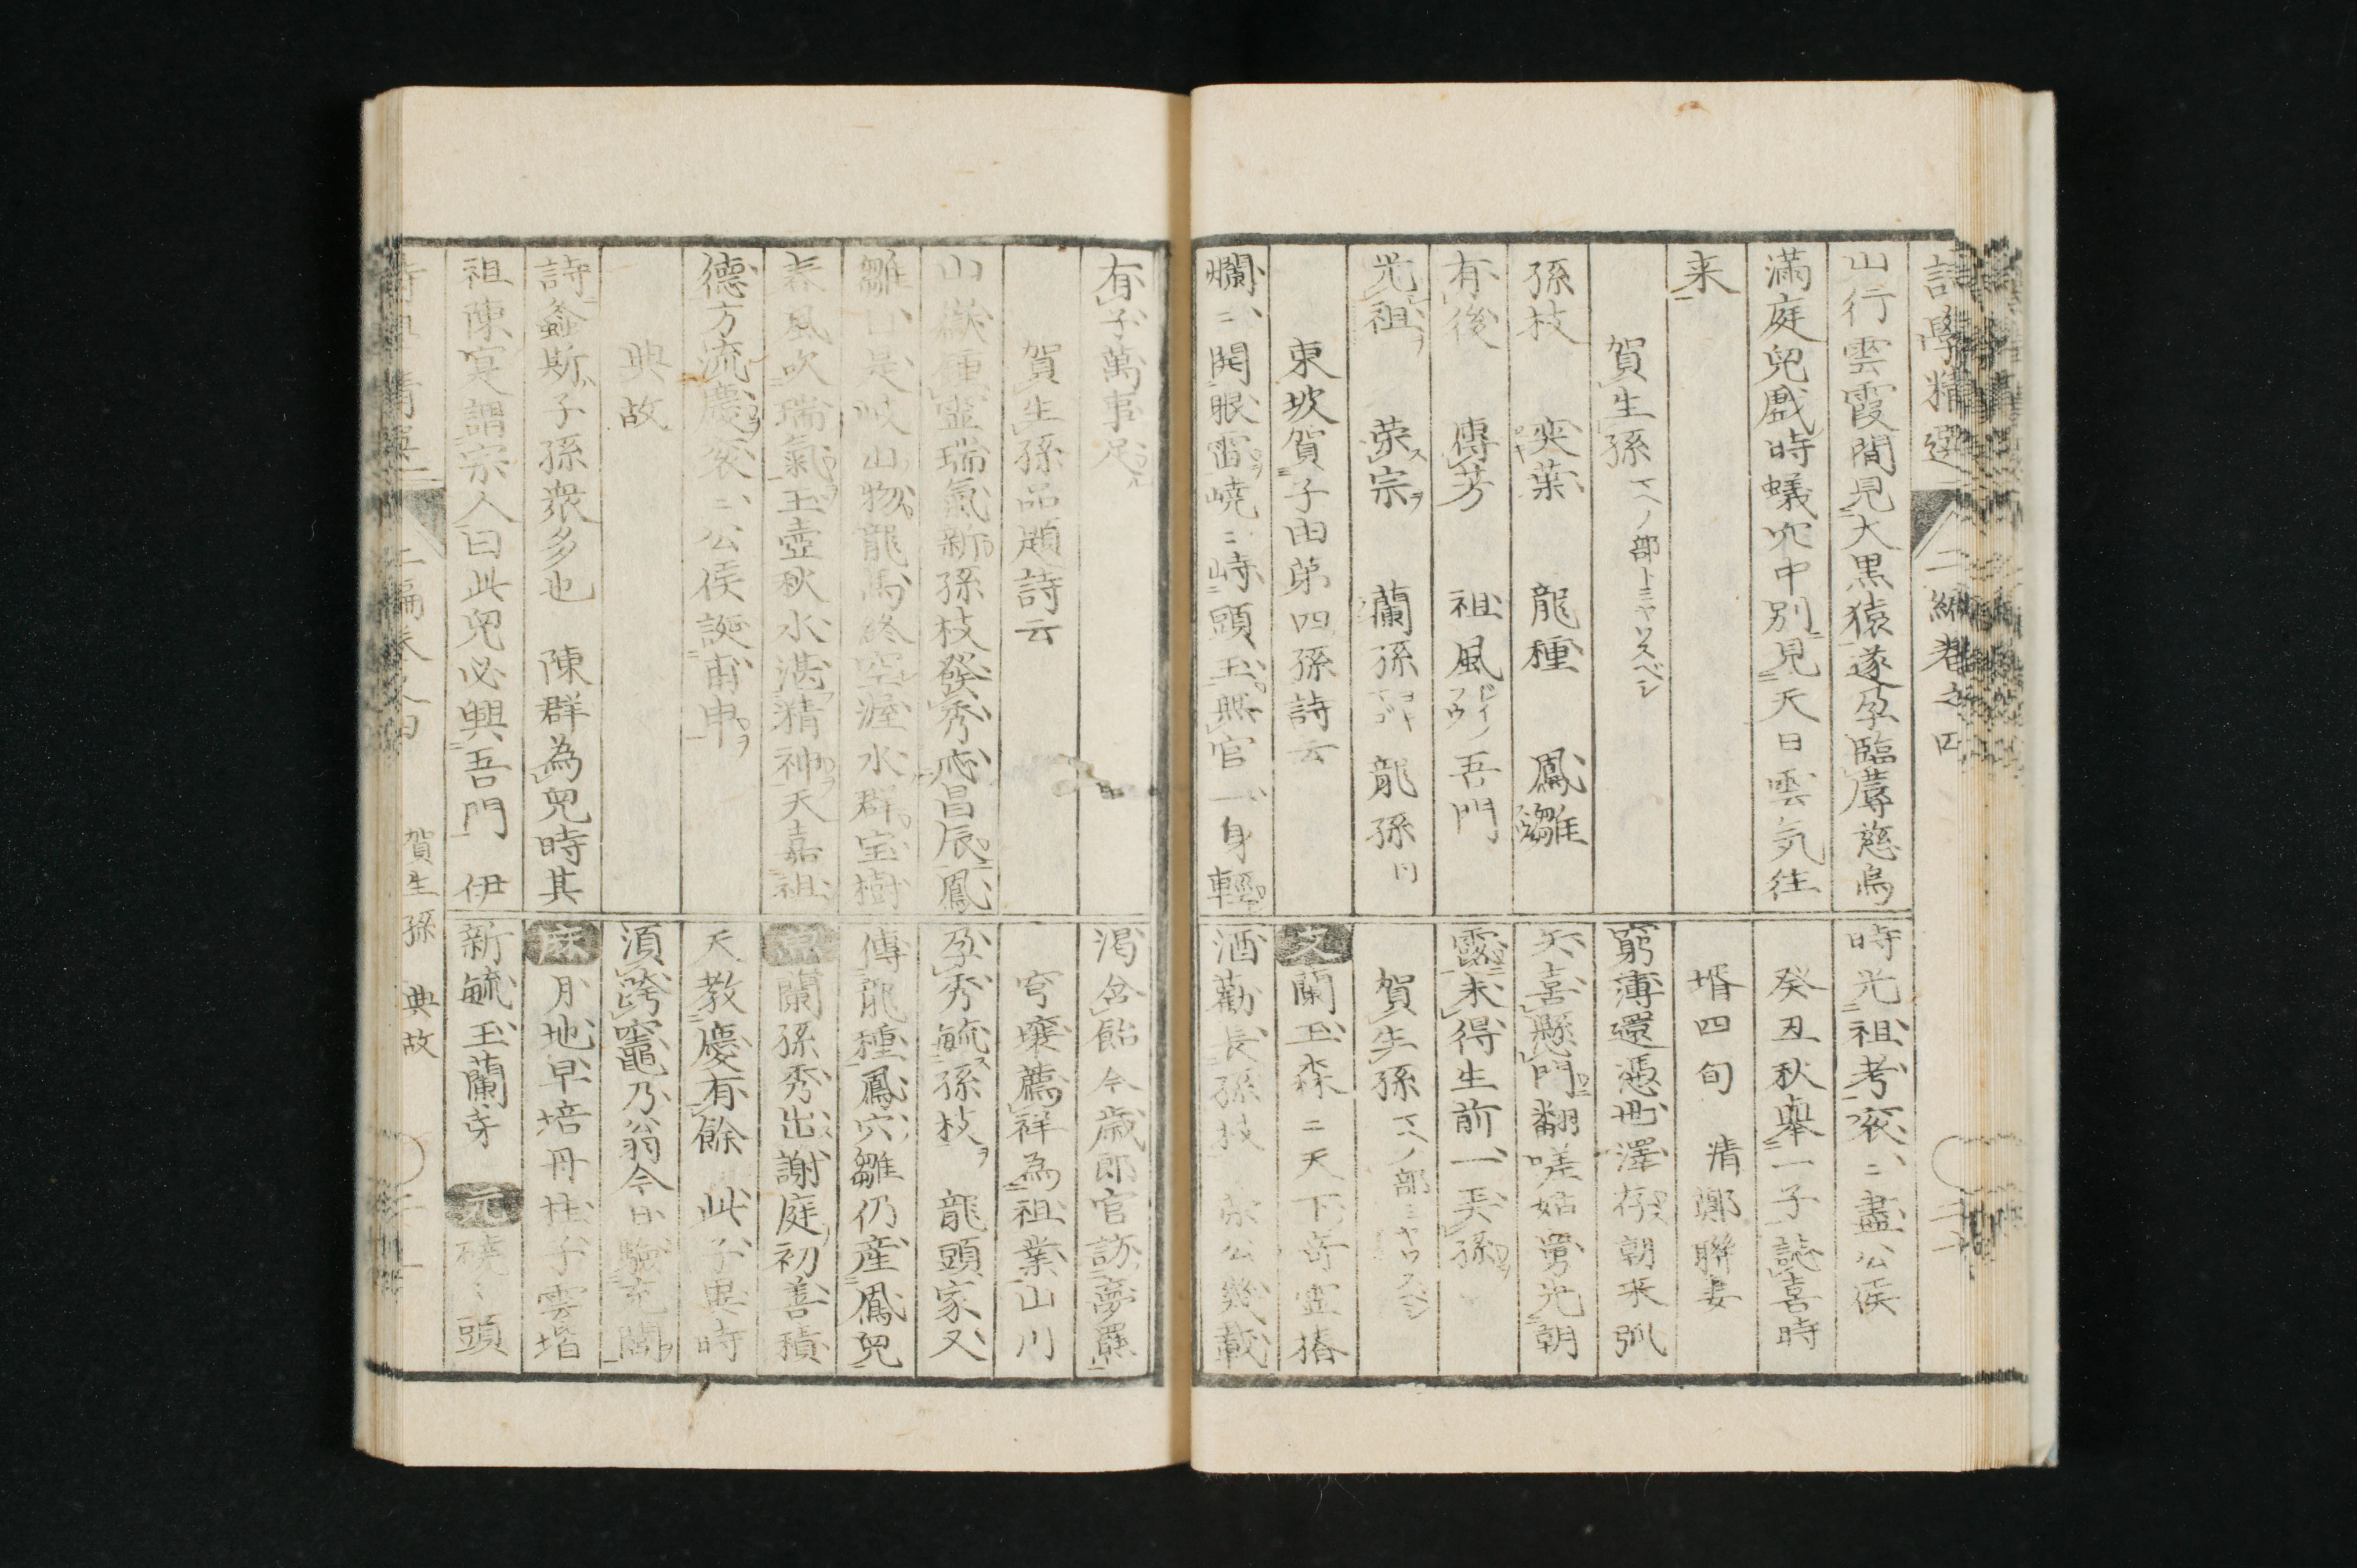 詩學精選 二編卷之四
山行雲霞間見大黒猿遂孕臨蓐慈烏
滿庭兒戲時蟻穴中別見天日雲気往
来
賀生孫
孫枝 奕葉 龍種 鳳雛
有後 傳芳 祖風 吾門
光祖 荣宗 蘭孫 龍孫
東坡賀子由第四孫詩云
爛〻開眼雷嶢〻峙頭玉無官一身輕
時光祖考衮〻盡公侯
癸丑秋舉一子誌喜時
壻四旬 清鄭聯妻
窮薄還憑世澤存朝来弧
矢喜懸門翻嗟姑舅先朝
露未得生前一弄孫
賀生孫
又蘭玉森〻天下奇靈椿
酒勸長孫枝 公幾載
有子萬事足
賀生孫品題詩云
山嶽種靈瑞氣新孫枝發秀応昌辰鳳
雛 是岐山物龍馬終空渥水群宝樹
春風吹瑞氣玉壺秋水湛精神天嘉祖
德方流慶衮〻公侯誕甫申
典故
詩螽斯子孫衆多也 陳群為兒時其
祖陳寔謂宗人曰此兒必興吾門 伊
渴分飴今歳郎官訪夢羆
穹 薦祥為祖業山川
孕秀毓孫枝 龍頭家又
傳龍種鳳穴雛仍産鳳兒
蘭孫秀出謝庭初善積
天教慶有餘 此子異時
須跨竈乃翁今日 充閭
月地早培丹桂子雲堦
新毓玉蘭芽 元 〻頭
賀生孫 典故